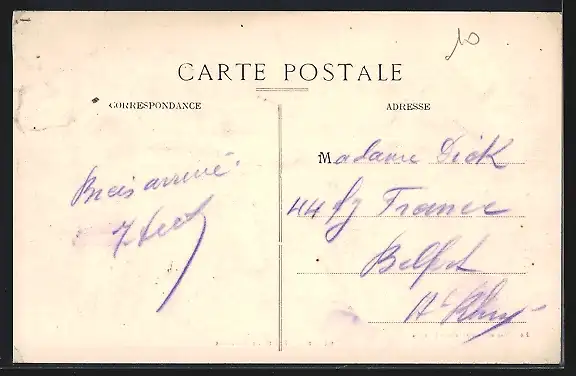 10
CARTE POSTALE
CORRESPONDANCE
ADRESSE
Bien arrivé.
Madame Dick
44 fg France
Belfort
Ht Rhin